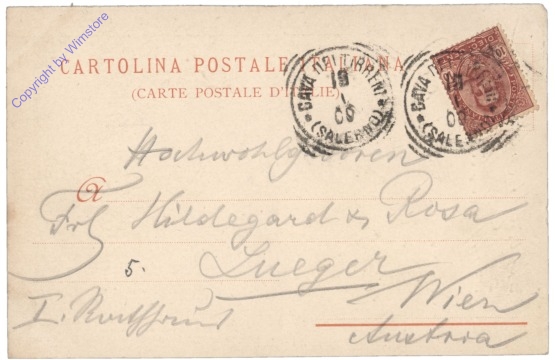 Copyright by Wimstore
CARTOLINA POSTALE ITALIANA
(CARTE POSTALE D'ITALIE)
CAVA DEI TIRRENI
18
1
00
(SALERNO)
CAVA
18
00
(SALERNO)
Hochwohlgeboren
a
Frl Hildegard & Rosa
Lueger
5.
I. Wien
Austria